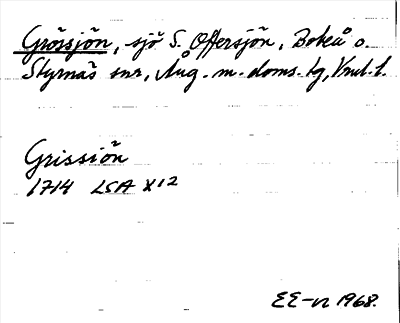 Grössjön, sjö S. Offersjön, Boteå o.
Styrnäs snr, Ång. m. doms. tg, Vnrl. l.
Grissiön
1714 LSA X12
EE-n 1968.